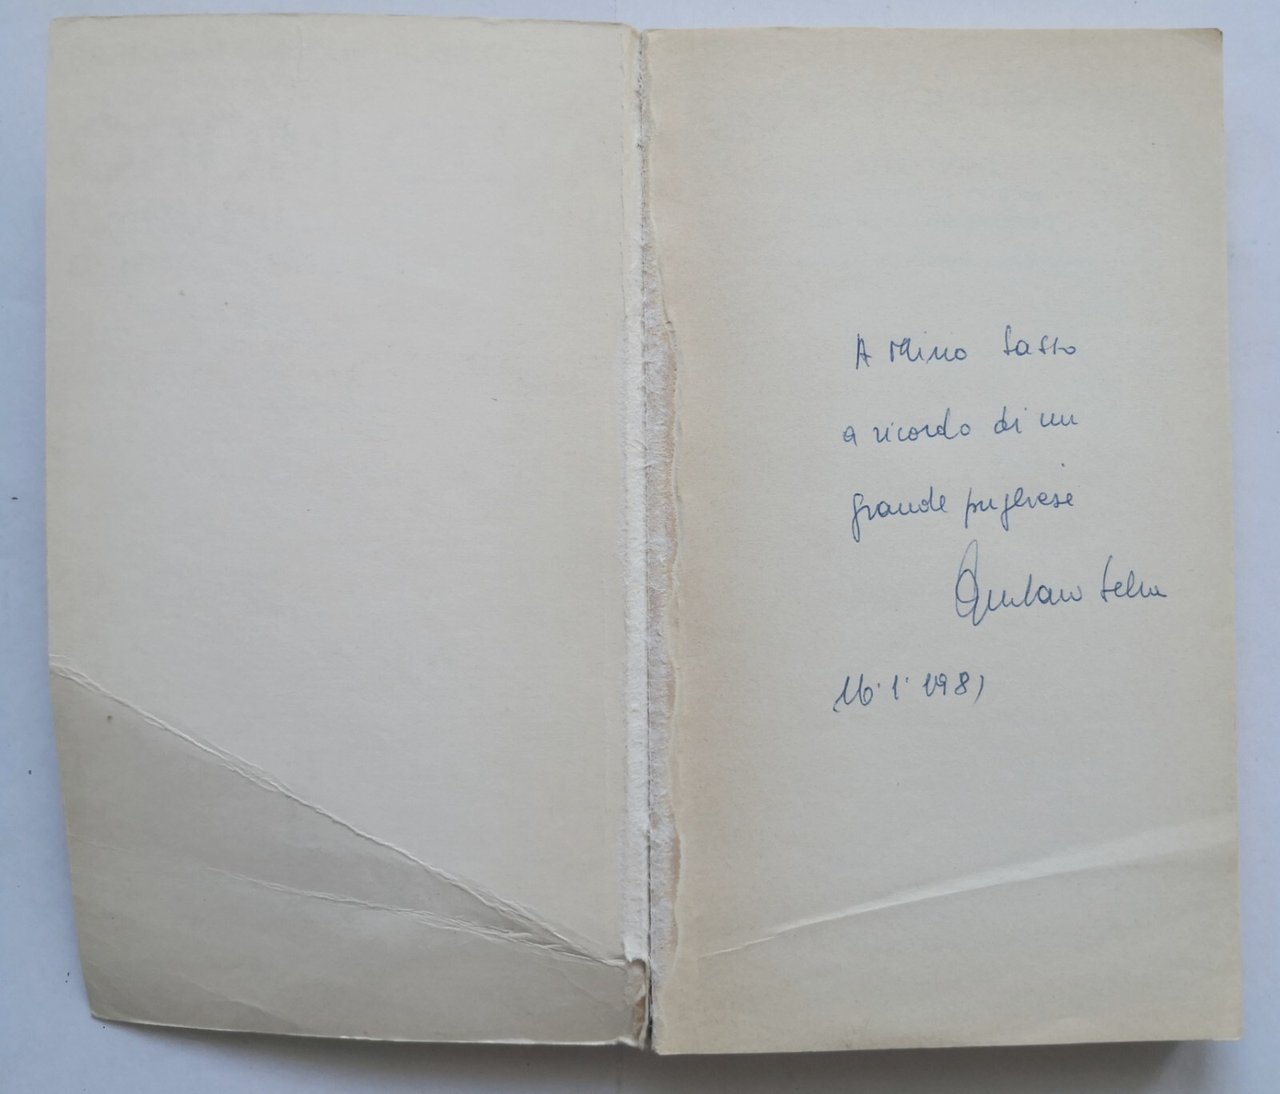 A Mino Sasso
a ricordo di un
grande pugliese
Gustavo Selva
16·1·1981